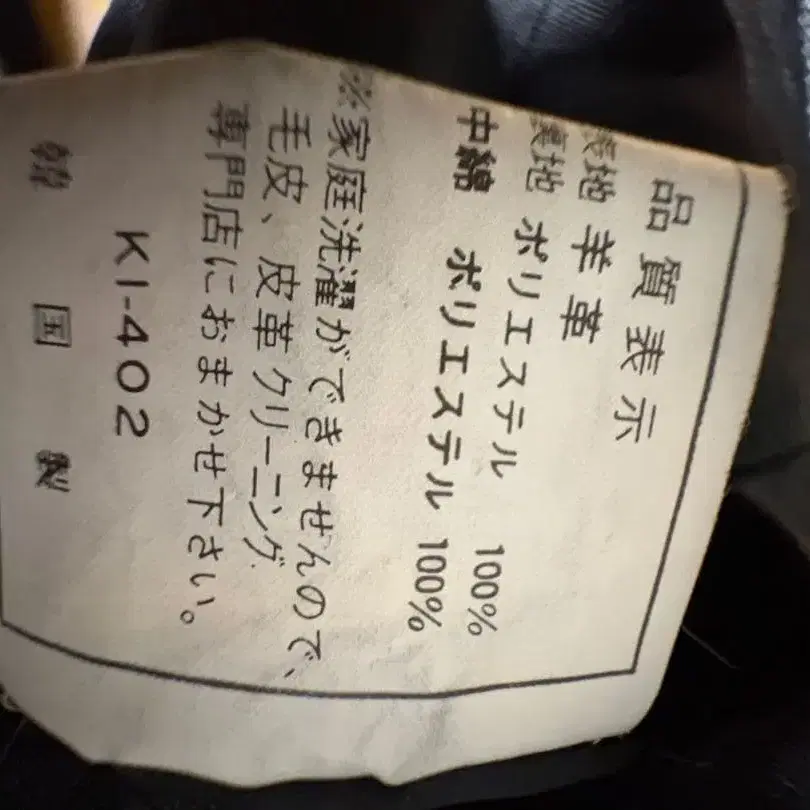 品質表示
表地 羊革
裏地 ポリエステル 100%
中綿 ポリエステル 100%
※家庭洗濯ができませんので、
毛皮、皮革クリーニング
専門店におまかせ下さい。
KI-402
韓国製